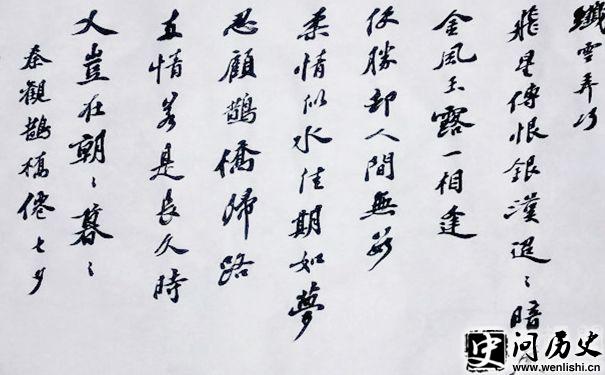 纖雲弄巧
飛星傳恨銀漢迢〻暗
金風玉露一相逢
便勝却人間無數
柔情似水佳期如夢
忍顧鵲橋歸路
兩情若是長久時
又豈在朝〻暮〻
秦觀鵲橋僊七夕
史问历史
www.wenlishi.cn